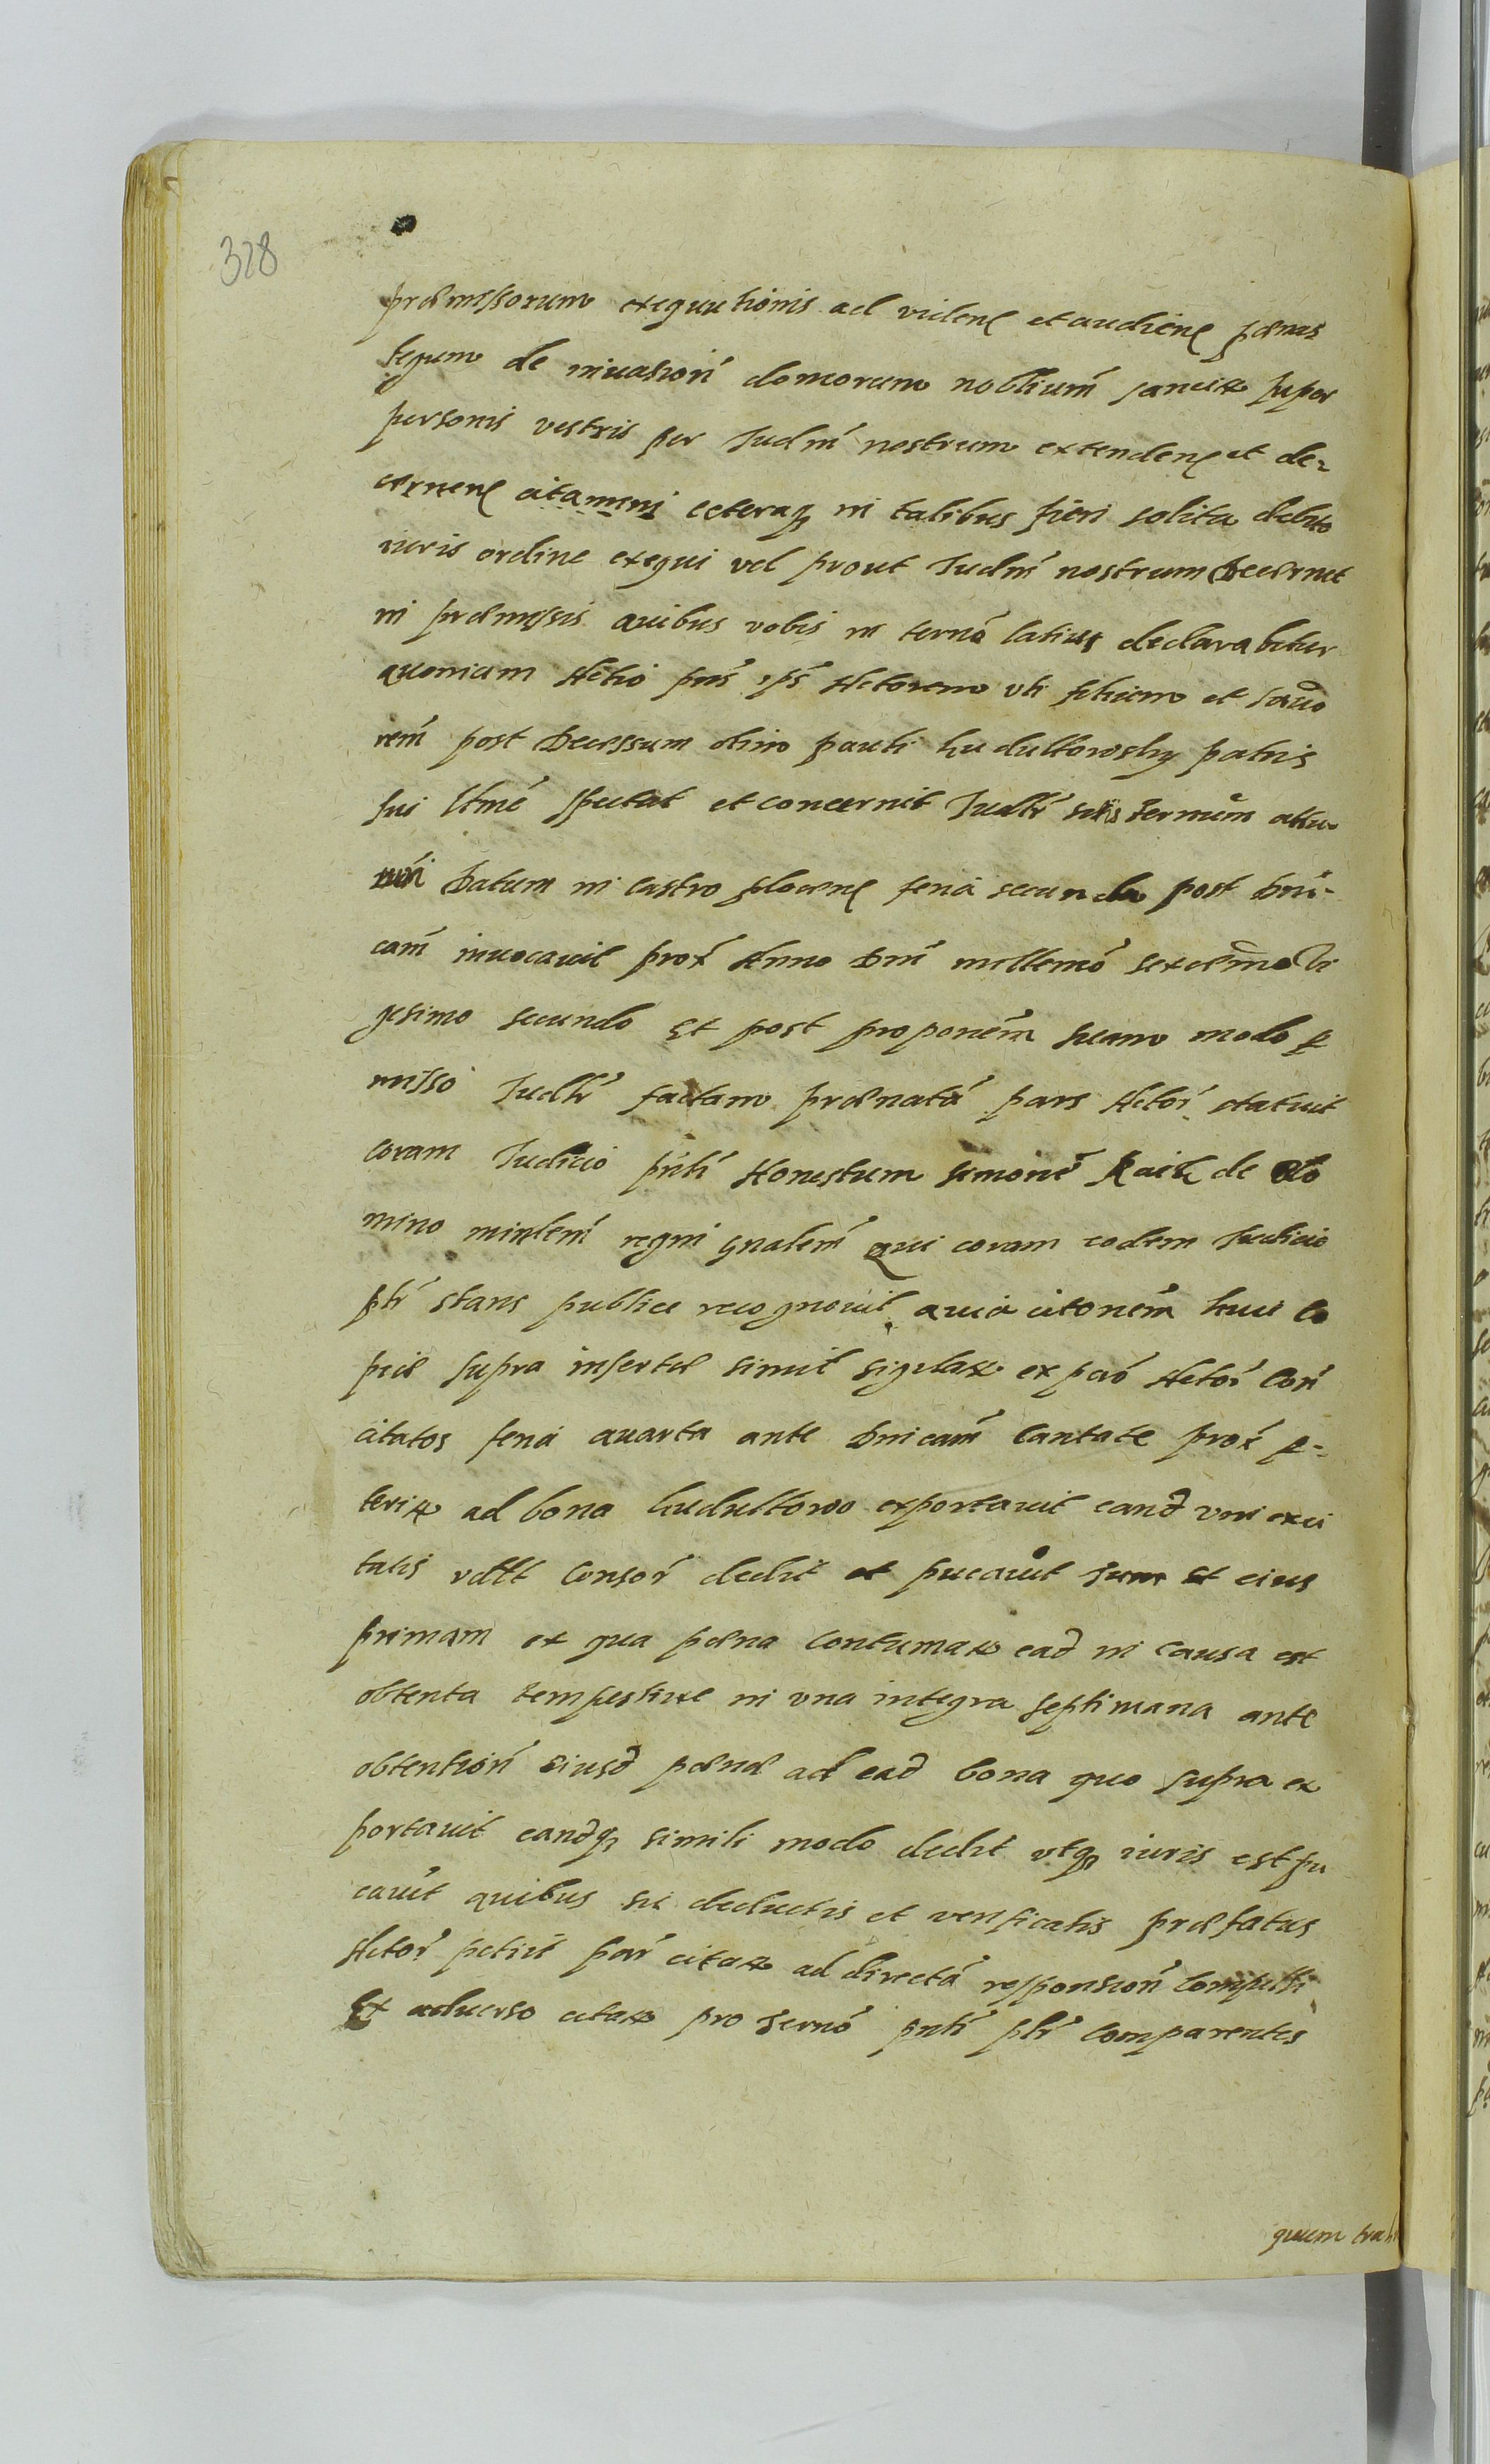 328
præmissorum exequutionis ad videnđ et audienđ pænas
legum de invasioñ domorum nobliuḿ sancitas super
personis vestris per Iudiḿ nostrum extendenđ et de-
cernenđ citamini ceteraq in talibus fieri solita debito
iuris ordine exequi vel prout Iudiḿ nostrum decernet
in præmissis quibus vobis in terno latius declarabitur
quoniam Actio pñs ips Actorem uti filium et
rem post decessum olim Pauli Hudultowsky patris
sui ltme spectat et concernit Iudlr terminum attu
Datum in Castro feria secunda post Dni-
cam invocavit prox Anno Dni millemo sexcenmo Vi
gesimo secundo Et post proponem suam modo p
misso Iudlr factam prænata pars Actor statuit
coram Iudicio pnti Honestum Simone de
mino minlem regni gnalem qui coram eodem Iudicio
plr stans publice recognovit quia citonem huic Co
piæ supra insertæ simil sigilatas ex parte Actor Con
citatos feria quarta ante Dnicam Cantate prox p-
teritas ad bona Hudultowo exportavit eand uni
talis Consor dedit et pucavit sum et eius
primam ex qua pæna contumax ead in causa est
obtenta tempestive in una integra septimana ante
obtention eiusd pænæ ad ead bona quo supra ex
portavit eandq simili modo dedit utq iuris est pu
cavit quibus sic deductis et verificatis præfatus
Actor petiit par citatas ad directa responsion compelli
Ex adverso citatas pro terno pnti plr comparentes
quum